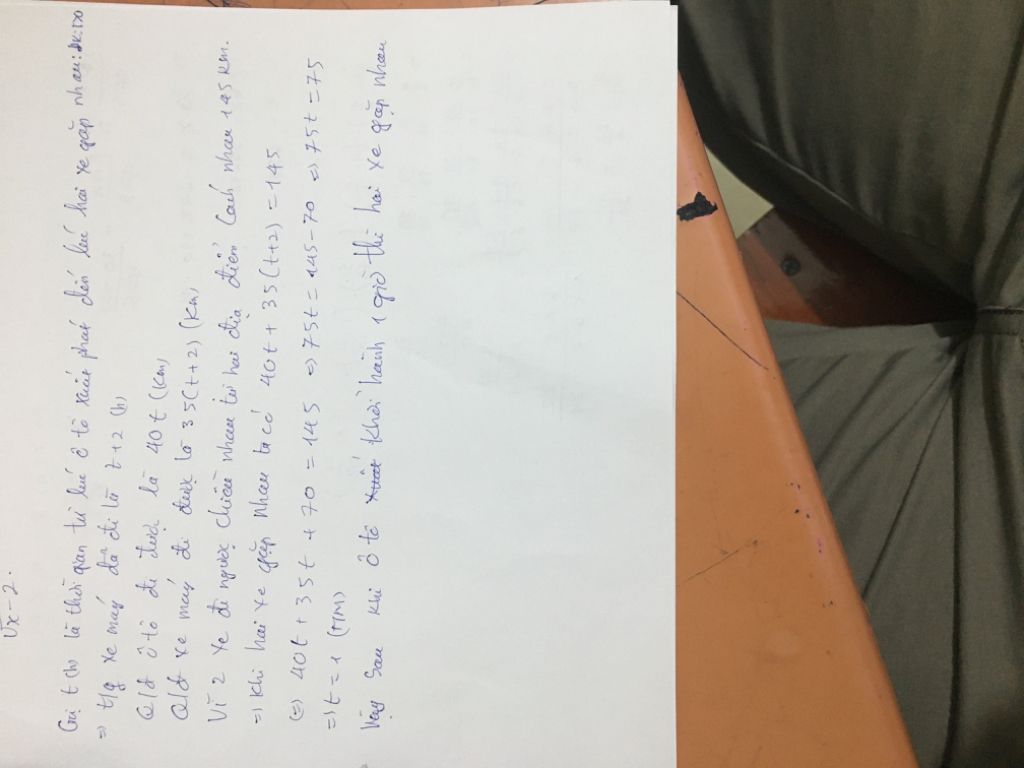 √x-2.
Gọi t (h) là thời gian từ lúc ô tô xuất phát đến lúc hai xe gặp nhau: ĐK: t>0
=> t/g xe máy đã đi là t+2 (h)
Q/đ ô tô đi được là 40t (km)
Q/đ xe máy đi được là 35(t+2) (km)
Vì 2 xe đi ngược chiều nhau từ hai địa điểm cách nhau 145 km.
=> Khi hai xe gặp nhau ta có 40t + 35(t+2) = 145
(=) 40t + 35t + 70 = 145 => 75t = 145-70 => 75t = 75
=> t = 1 (TM)
Vậy sau khi ô tô khởi hành 1 giờ thì hai xe gặp nhau